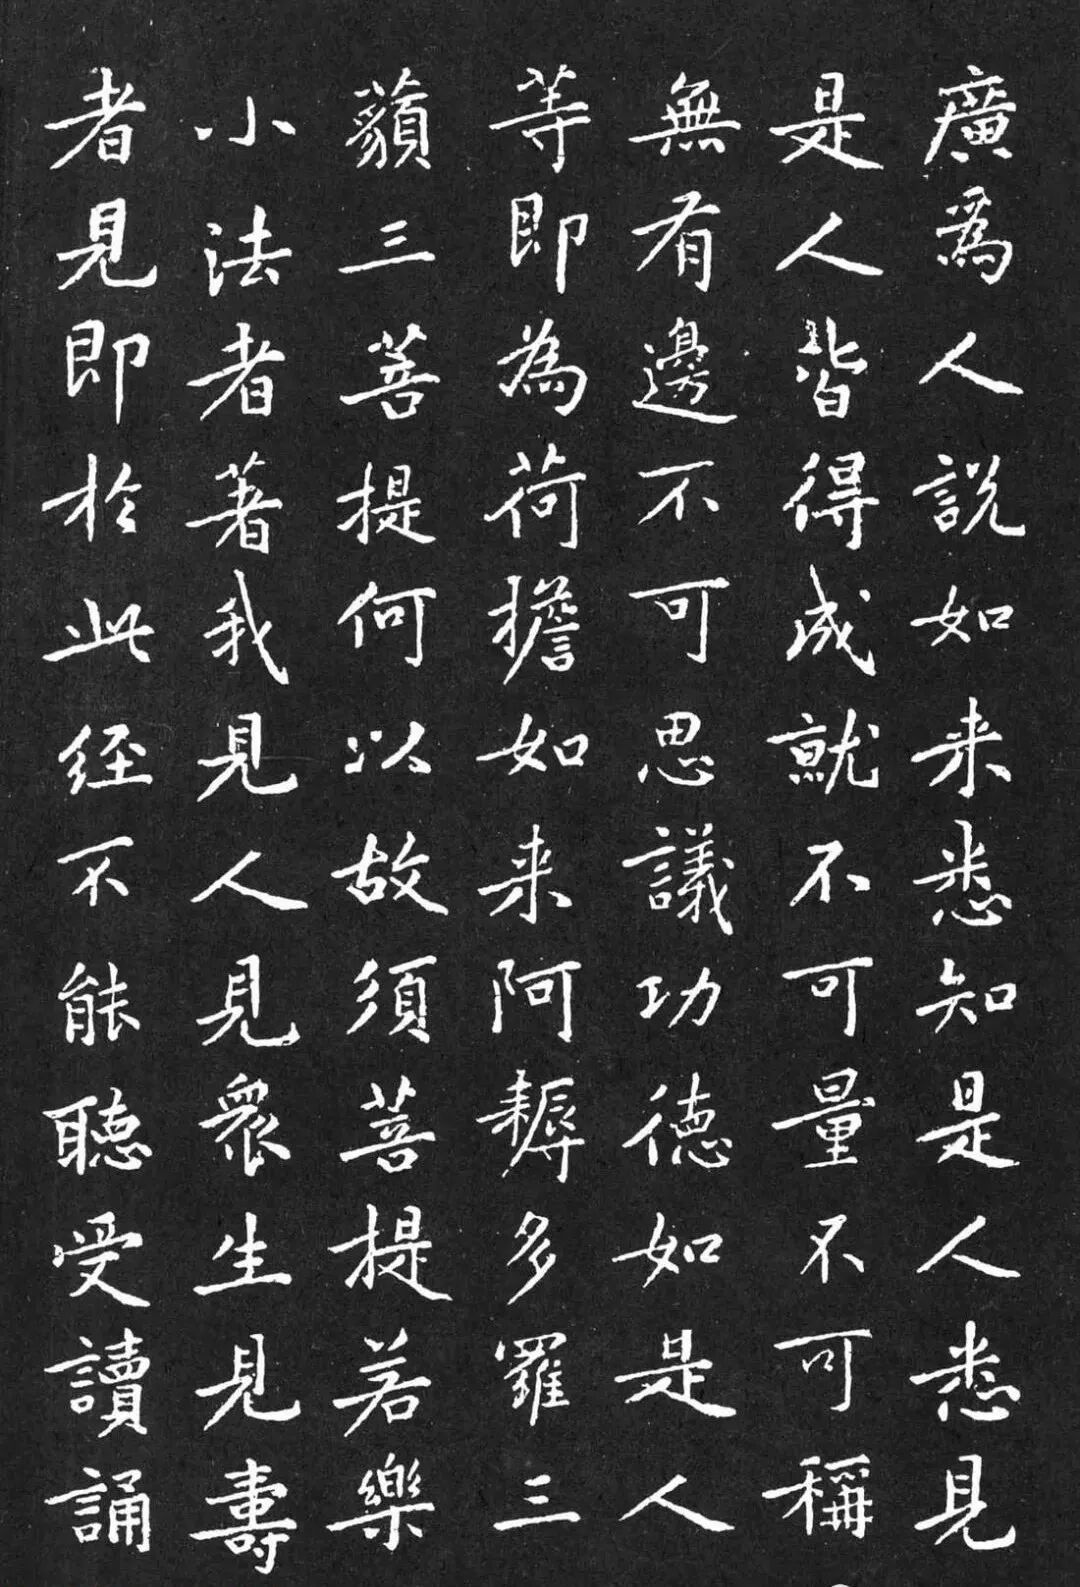 廣為人説如来悉知是人悉見
是人皆得成就不可量不可稱
無有邊不可思議功德如是人
等即為荷擔如来阿耨多羅三
藐三菩提何以故須菩提若樂
小法者著我見人見衆生見壽
者見即於此經不能聽受讀誦